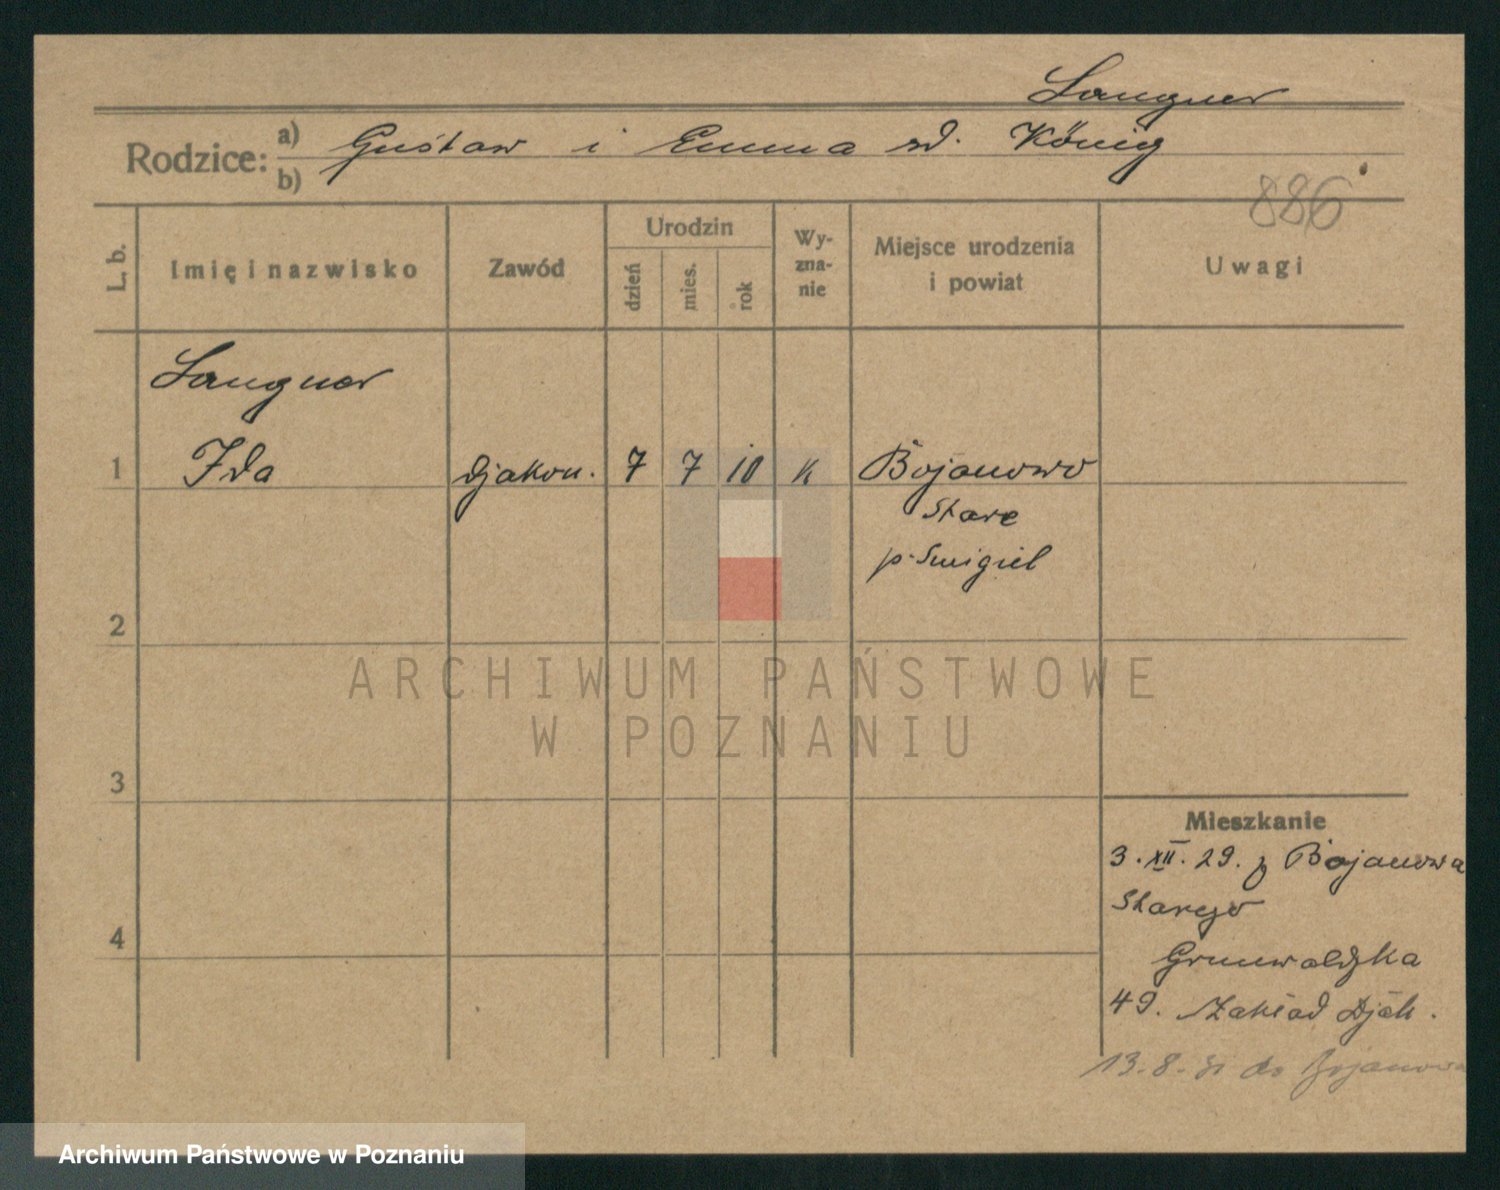 Langner
Rodzice: a) Gustaw i Emma zd. König
b)
886
L. b. Imię i nazwisko Zawód Urodzin dzień mies. rok Wyzna-nie Miejsce urodzenia i powiat Uwagi
Langner
1 Ida djakon. 7 7 10 Bojanowo
Stare
p. Smigiel
2
ARCHIWUM PAŃSTWOWE
W POZNANIU
3
Mieszkanie
3. XII. 29. z Bojanowa
Starego
4
Grunwaldzka
49. Zakład Djak.
13. 8. 31 do Bojanowa
Archiwum Państwowe w Poznaniu